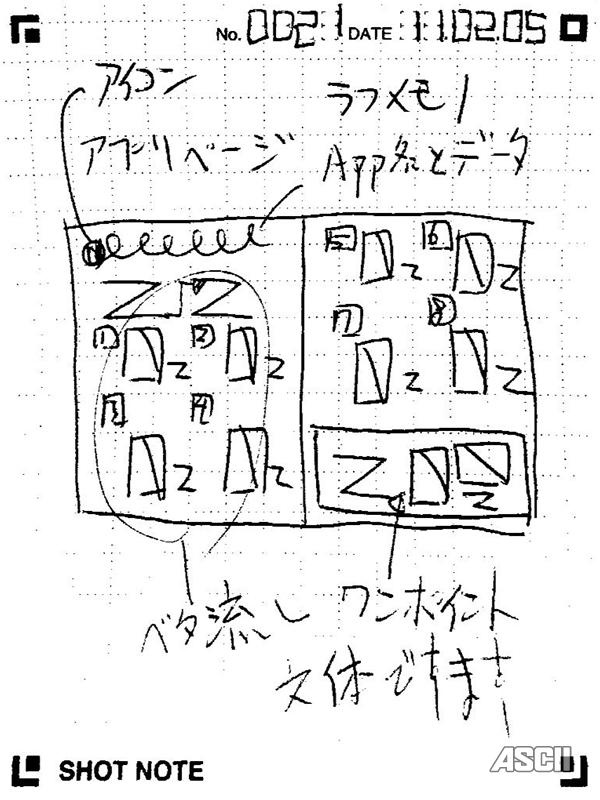 No. 0021 DATE 11.02.05
アイコン
ラフメモ1
アプリページ
App名とデータ
5 6
1 2
7 8
3 4
ベタ流し
ワンポイント
文体ですます
ASCII
SHOT NOTE